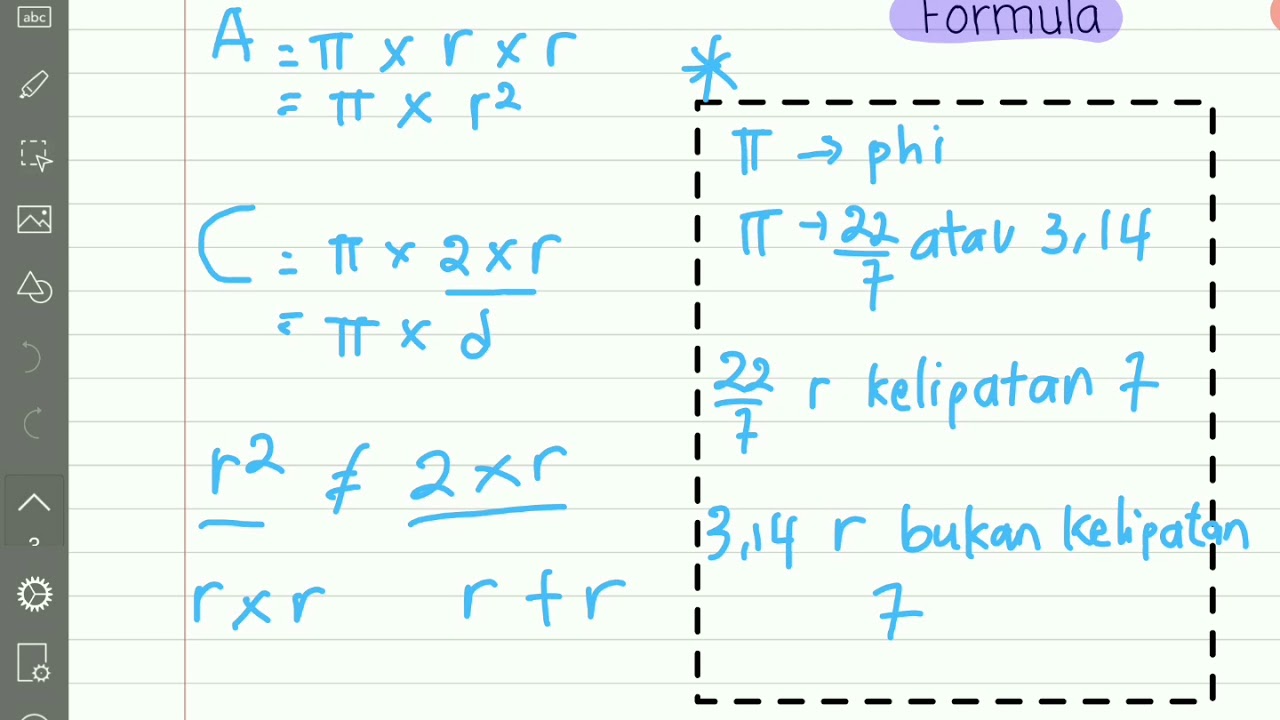 abc
Formula
A = π x r x r
= π x r²
C = π x 2 x r
= π x d
r² ≠ 2 x r
r x r r + r
*
π → phi
π → 22/7 atau 3,14
22/7 r kelipatan 7
3,14 r bukan kelipatan
7